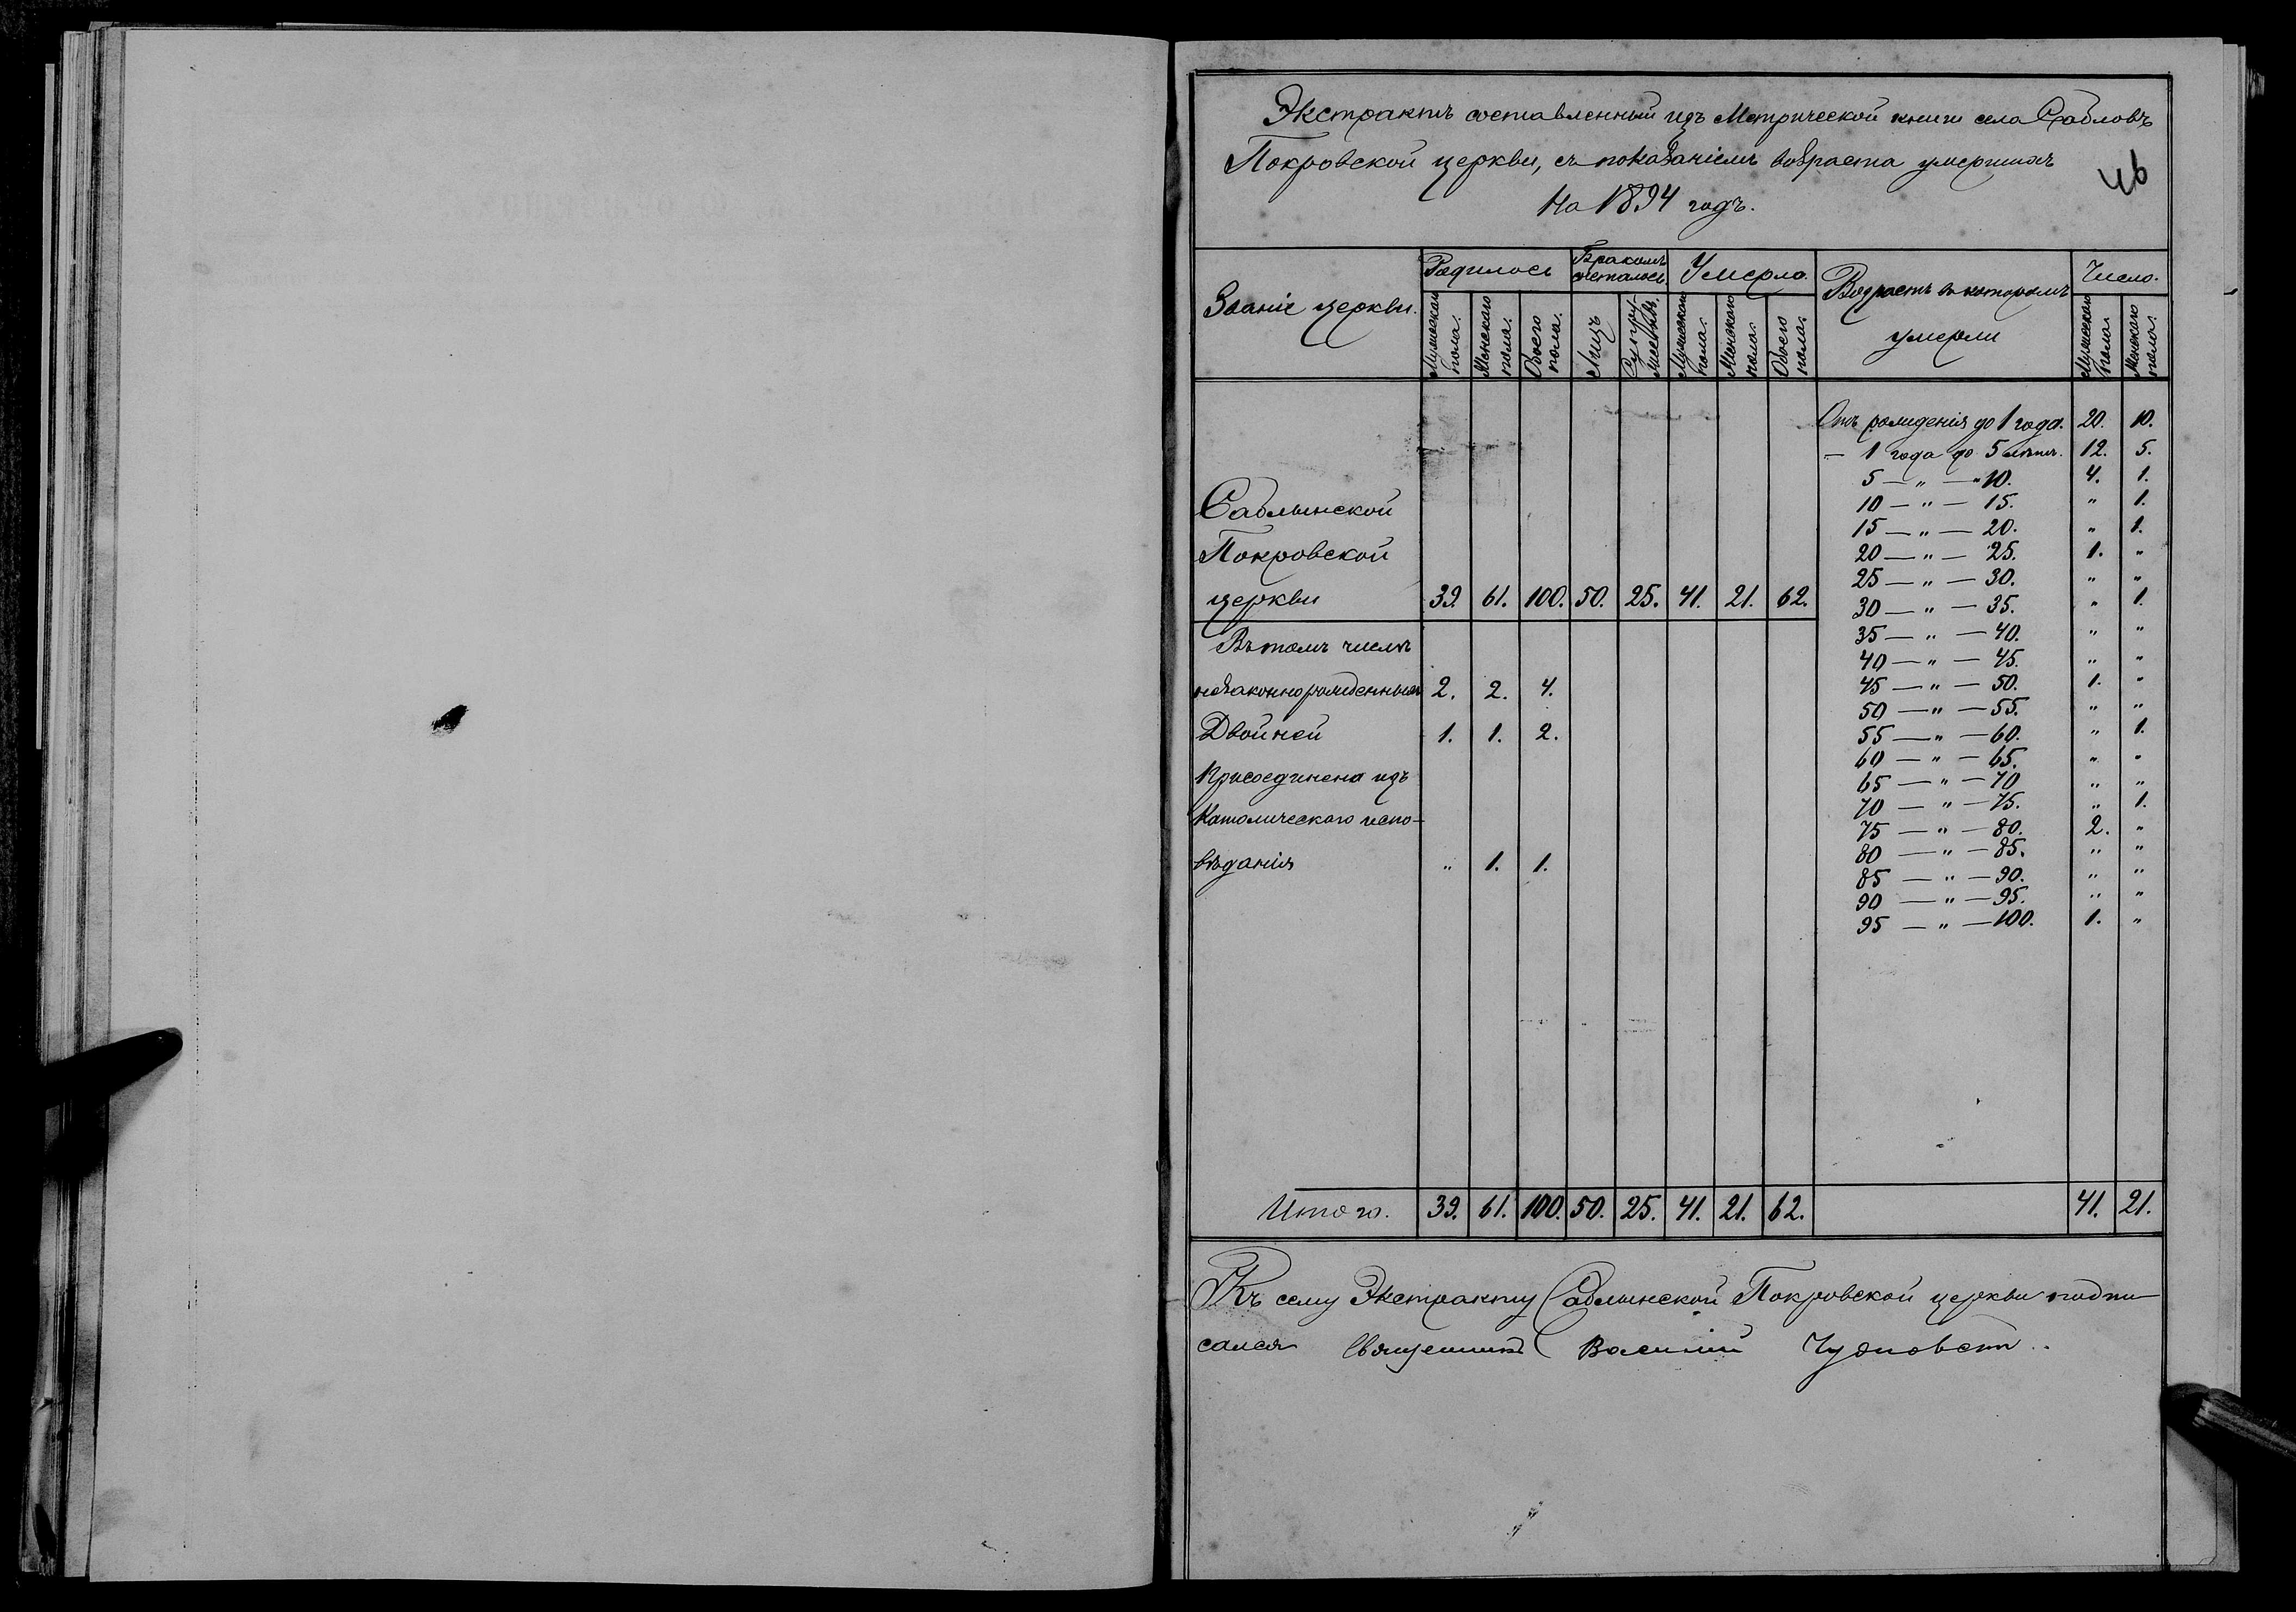 Экстрактъ составленный изъ Метрической книги села Сабловъ
Покровской церкви, съ показаніемъ возраста умершихъ
на 1894 годъ.
46
Званіе церкви.
Родилось
Бракомъ сочеталось
Умерло.
Возрастъ въ которомъ умерли
Число.
Мужескаго пола.
Женскаго пола.
Обоего пола.
Лицъ
Мужескаго пола.
Женскаго пола.
Обоего пола.
Мужескаго пола.
Женскаго пола.
Отъ рожденія до 1 года. 20. 10.
— 1 года до 5 лѣтъ. 12. 5.
5 — „ — „ 10. 4. 1.
10 — „ — 15. „ 1.
15 — „ — 20. „ 1.
20 — „ — 25. 1. „
25 — „ — 30. „ „
30 — „ — 35. „ 1.
35 — „ — 40. „ „
40 — „ — 45. „ „
45 — „ — 50. 1. „
50 — „ — 55. „ „
55 — „ — 60. „ 1.
60 — „ — 65. „ „
65 — „ — 70 „ „
70 — „ — 75. „ 1.
75 — „ — 80. 2. „
80 — „ — 85. „ „
85 — „ — 90. „ „
90 — „ — 95. „ „
95 — „ — 100. 1. „
Саблынской
Покровской
церкви 39. 61. 100. 50. 25. 41. 21. 62.
Въ томъ числѣ
незаконнорожденныхъ 2. 2. 4.
Двойней 1. 1. 2.
Присоединена изъ
Католическаго испо-
вѣданія „ 1. 1.
Итого. 39. 61. 100. 50. 25. 41. 21. 62. 41. 21.
Къ сему Экстракту Саблынской Покровской церкви подпи
сался Священникъ Василій